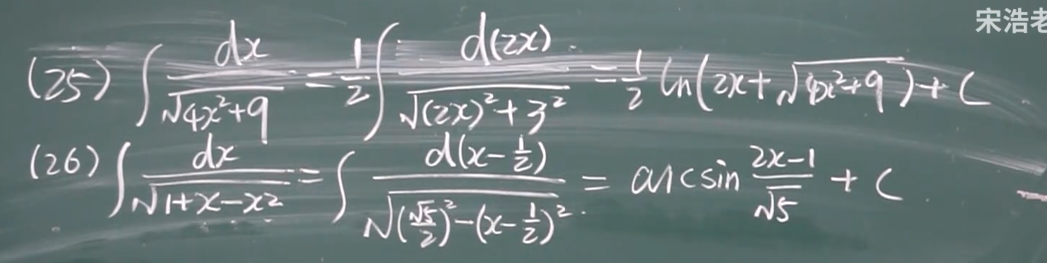 宋浩老
(25) ∫ dx/√(4x²+9) = 1/2 ∫ d(2x)/√((2x)²+3²) = 1/2 ln(2x+√(4x²+9))+C
(26) ∫ dx/√(1+x-x²) = ∫ d(x-1/2)/√((√5/2)²-(x-1/2)²) = arcsin (2x-1)/√5 + C